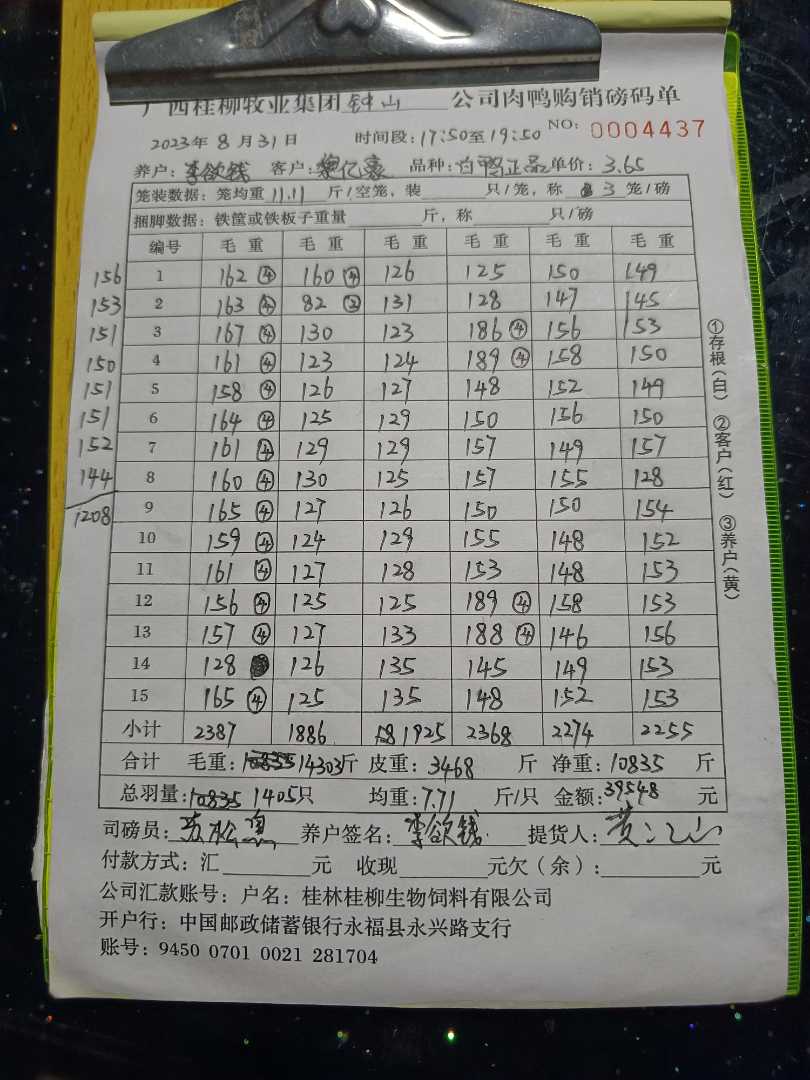 广西桂柳牧业集团 钟山 公司肉鸭购销磅码单
2023年 8月31日 时间段:17:50至19:50 NO: 0004437
养户:李欲钱 客户:黎亿豪 品种:白鸭正品 单价:3.65
笼装数据:笼均重 11.11 斤/空笼,装 只/笼,称 3 笼/磅
捆脚数据:铁筐或铁板子重量 斤,称 只/磅
编号 毛重 毛重 毛重 毛重 毛重 毛重
156 1 162④ 160④ 126 125 150 149
153 2 163④ 82② 131 128 147 145
151 3 167④ 130 123 186④ 156 153
150 4 161④ 123 124 189④ 158 150
151 5 158④ 126 127 148 152 149
151 6 164④ 125 129 150 156 150
152 7 161④ 129 129 157 149 157
144 8 160④ 130 125 157 155 128
1208 9 165④ 127 126 150 150 154
10 159④ 124 129 155 148 152
11 161④ 127 128 153 148 153
12 156④ 125 125 189④ 158 153
13 157④ 127 133 188④ 146 156
14 128 126 135 145 149 153
15 165④ 125 135 148 152 153
小计 2387 1886 1925 2368 2274 2255
合计 毛重:10835 14303斤 皮重:3468 斤 净重:10835 斤
总羽量:10835 1405只 均重:7.71 斤/只 金额:39548 元
司磅员: 养户签名:李欲钱 提货人:
付款方式:汇 元 收现 元欠(余): 元
公司汇款账号:户名:桂林桂柳生物饲料有限公司
开户行:中国邮政储蓄银行永福县永兴路支行
账号:9450 0701 0021 281704
①存根(白) ②客户(红) ③养户(黄)